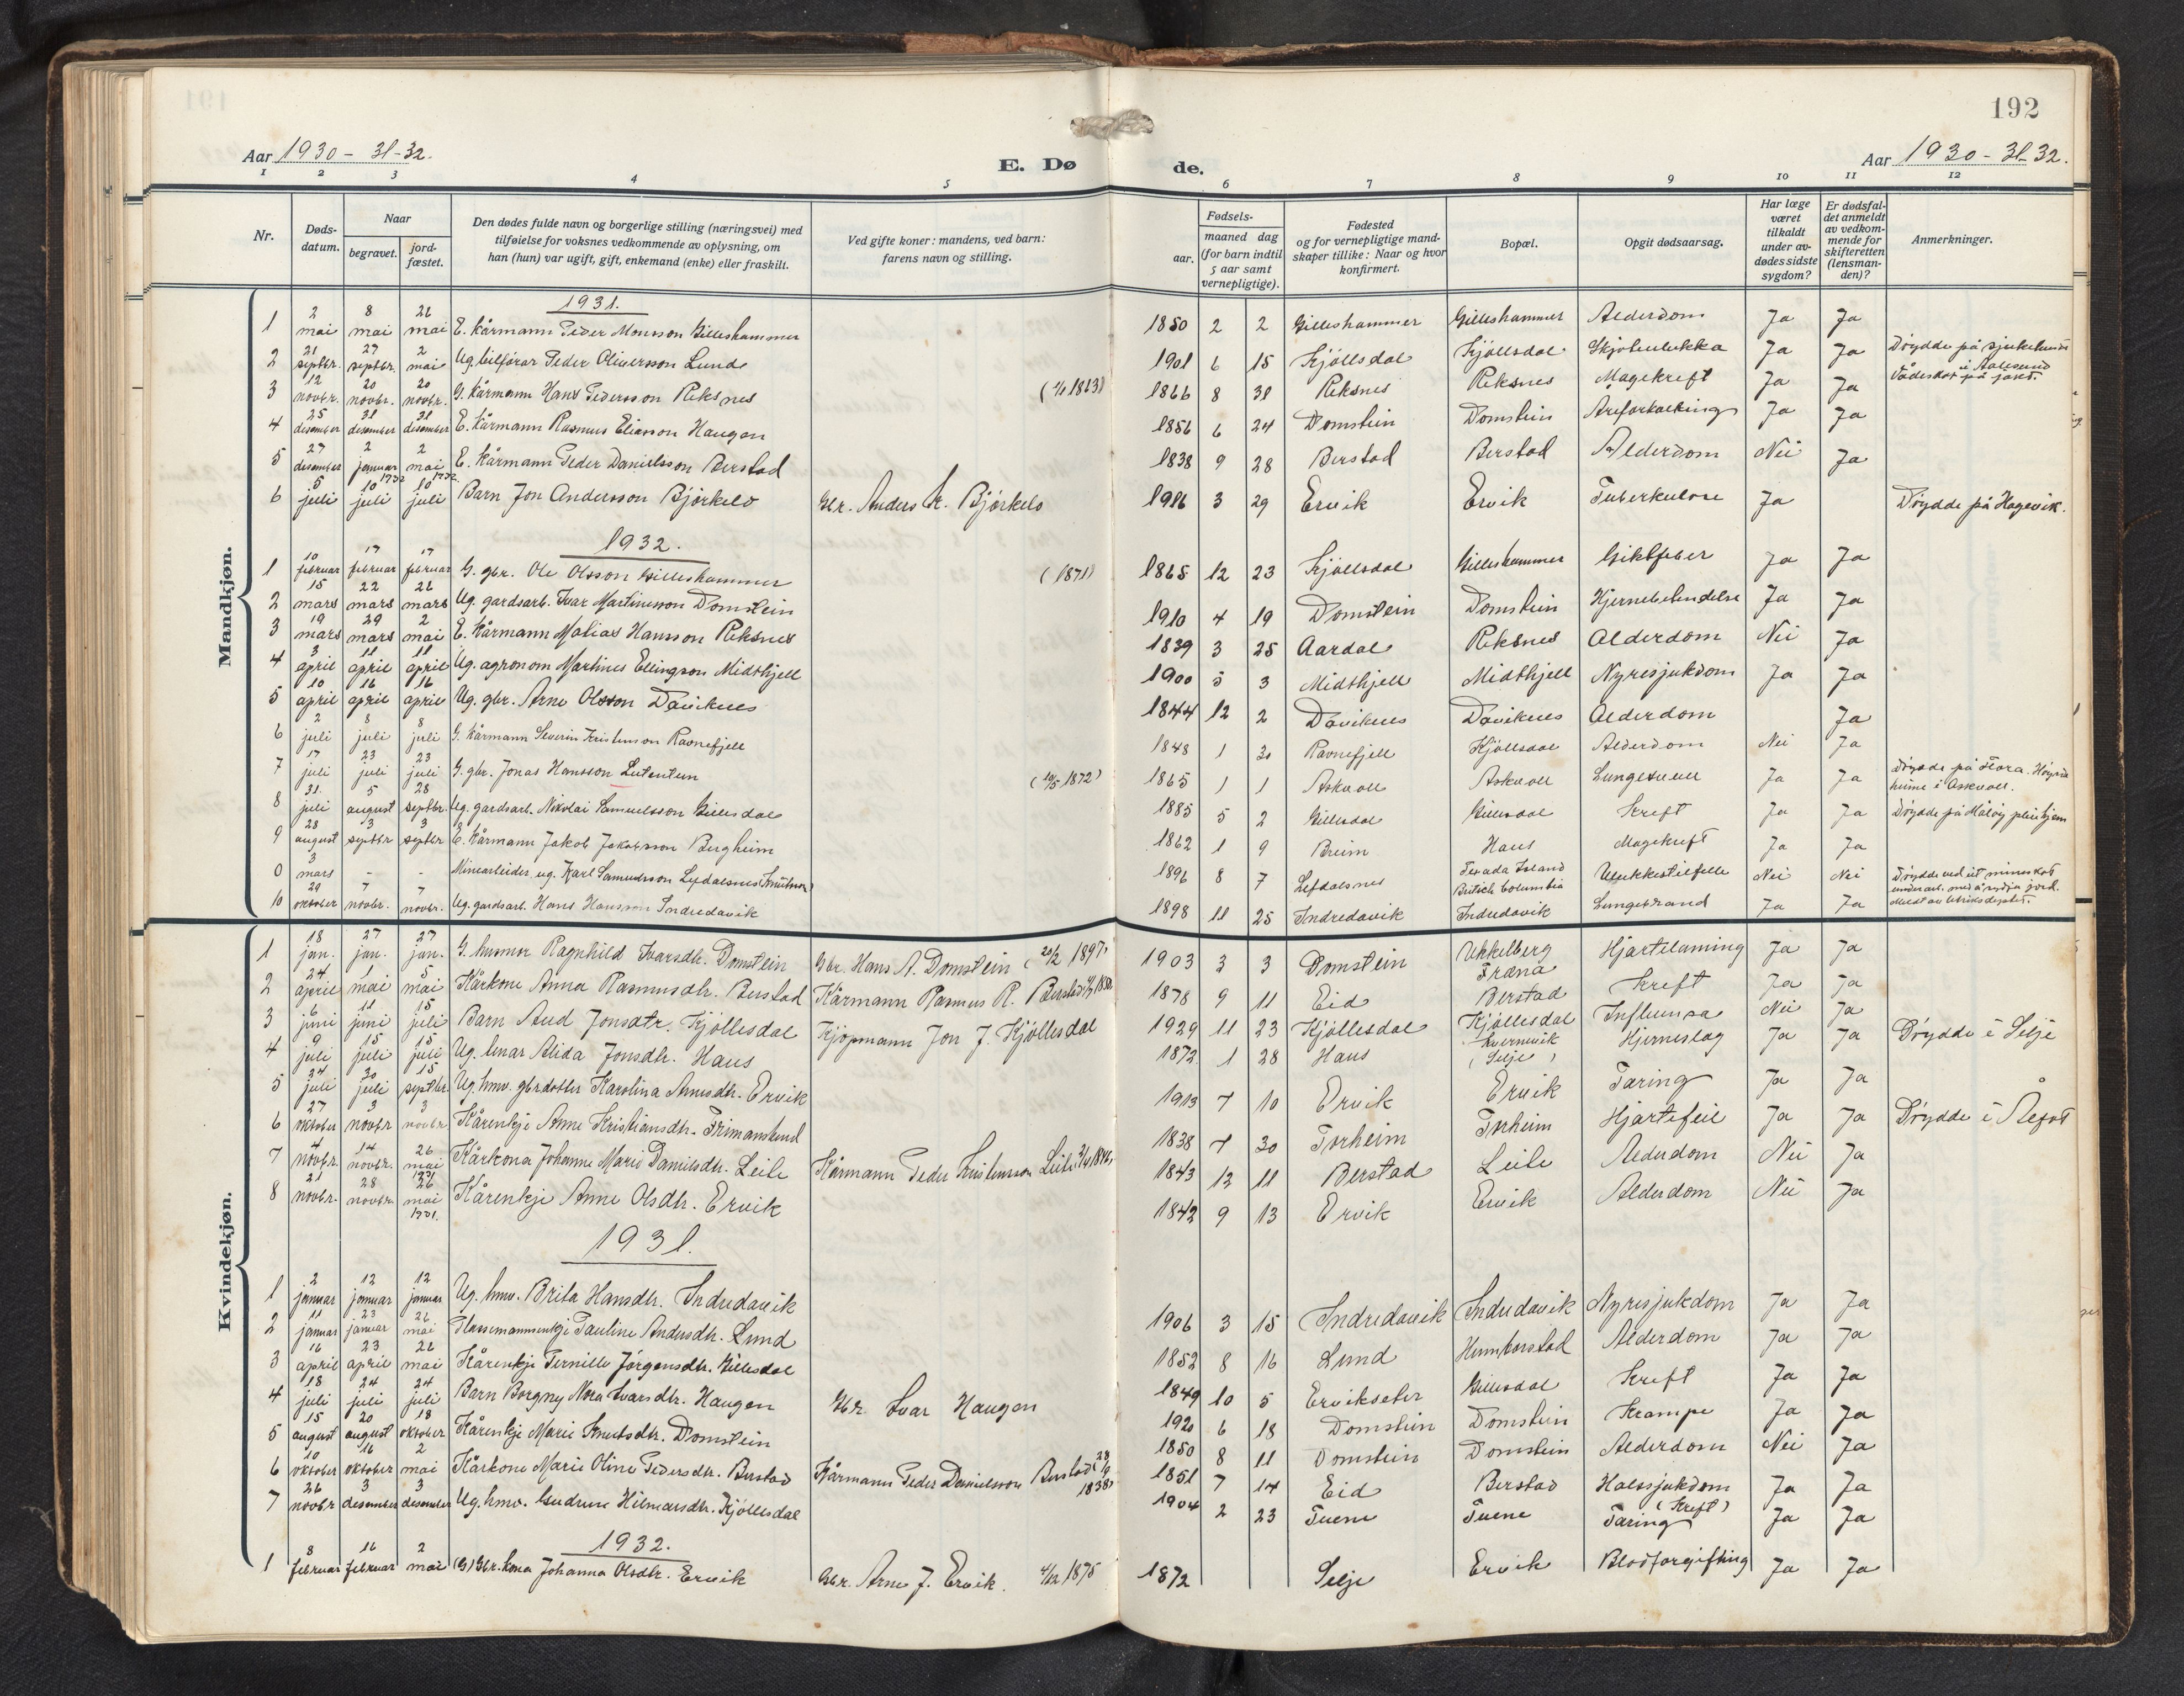 192
Aar 1930 - 31-32.
E. Dø
de.
Aar 1930 - 31-32.
1 2 3 4 5 6 7 8 9 10 11 12
Nr.
Døds-datum.
Naar
begravet.
jord-fæstet.
Den dødes fulde navn og borgerlige stilling (næringsvei) med
tilføielse for voksnes vedkommende av oplysning, om
han (hun) var ugift, gift, enkemand (enke) eller fraskilt.
Ved gifte koner: mandens, ved barn:
farens navn og stilling.
Fødsels-
aar.
maaned dag
(for barn indtil
5 aar samt
vernepligtige).
Fødested
og for vernepligtige mand-
skaper tillike: Naar og hvor
konfirmert.
Bopæl.
Opgit dødsaarsag.
Har læge
været
tilkaldt
under av-
dødes sidste
sygdom?
Er dødsfal-
det anmeldt
av vedkom-
mende for
skifteretten
(lensman-
den)?
Anmerkninger.
Mandkjøn.
1931.
1 2 mai 8 mai 26 mai E. kårmann Peder Monsson Gilleshammer 1850 2 2 Gilleshammer Gilleshammer Alderdom Ja Ja
2 21 septbr. 27 septbr. 2 mai Ug. bilførar Peder Oliversson Lunde 1901 6 15 Kjøllsdal Kjøllsdal Ja Ja Døydde på sjukehuset i Aalesund Vådeskot på jakt.
3 12 novbr. 20 novbr. 20 novbr. G. kårmann Hans Pedersson Reksnes 1863) 1866 8 31 Reksnes Reksnes Magekreft Ja Ja
4 25 desember 31 desember 31 desember E. kårmann Rasmus Eliasson Haugen 1856 6 24 Domstein Domstein Åreforkalking Ja Ja
5 27 desember 2 januar 1932 2 mai 1932 E. kårmann Peder Danielsson Berstad 1838 9 28 Berstad Berstad Alderdom Nei Ja
6 5 juli 10 juli 10 juli Barn Jon Andersson Bjørkelo Gbr. Anders Bjørkelo 1916 3 29 Ervik Ervik Tuberkulose Ja Døydde på Hagevik.
1932.
1 10 februar 17 februar 17 februar G. gbr. Ole Olsson Gilleshammer (1871) 1865 12 23 Kjøllsdal Gilleshammer Giktfeber Ja Ja
2 15 mars 22 mars 26 mars Ug. gardsarb. Ivar Martinusson Domstein 1910 4 19 Domstein Domstein Hjernebetendelse Ja Ja
3 19 mars 29 mars 2 mai E. kårmann Matias Hansson Reksnes 1839 3 25 Aardal Reksnes Alderdom Nei Ja
4 3 april 11 april 11 april Ug. agronom Martines Ellingson Midthjell 1900 5 3 Midthjell Midthjell Nyresjukdom Ja Ja
5 10 april 16 april 16 april Ug. gbr. Arne Olsson Daviknes 1844 12 2 Daviknes Daviknes Alderdom Ja
6 2 juli 8 juli 8 juli G. kårmann Severin Kristenson Ravnefjell 1848 1 30 Ravnefjell Kjøllsdal Alderdom Nei Ja
7 17 juli 23 juli 23 juli G. gbr. Jonas Hansson Leitentun (10/5 1872) 1865 1 1 Askvoll Askvoll Ja Ja Døydde på Flora. heime i Askvoll.
8 31 juli 5 august 28 septbr. Ug. gardsarb. Nikolai Samuelsson Gillesdal 1885 5 2 Gillesdal Gillesdal Kreft Ja Ja Døydde på Måløy pleiehjem
9 28 august 3 septbr 3 septbr E. kårmann Jakob Jakobsson Bergheim 1862 1 9 Breim Haus Magekreft Ja Ja
0 3 mars - - Minearbeider, ug. Karl Samuelsson Lefdalsnes (Knutson) 1896 8 7 Lefdalsnes Texada Island Britsch Columbia Ulukkestilfelle Nei Nei Døydde ved eit mineskot under arb. med å rydja jord. Meldt av Utriksdeptet.
10 29 oktober 7 novbr. 7 novbr. Ug. gardsarb. Hans Hansson Indredavik 1898 11 25 Indredavik Indredavik Lungebrand Ja Ja
Kvindekjøn.
1 18 jan. 27 jan. 27 jan. G. husmor Ragnhild Ivarsdtr. Domstein Gbr. Hans A. Domstein (20/2 1897) 1903 3 3 Domstein Ukkelberg Fræna Hjartelaming Ja Ja
2 24 april 1 mai 5 mai Kårkone Anna Rasmusdtr. Berstad Kårmann Rasmus R. Berstad 1878 9 11 Eid Berstad Kreft Ja Ja
3 6 juni 11 juni 15 juli Barn Aud Jonsdtr. Kjøllesdal Kjøpmann Jon J. Kjøllesdal 1929 11 23 Kjøllesdal Kjøllesdal Influensa Nei Ja
4 9 juli 15 juli 15 juli Ug. Alida Jonsdtr. Haus 1872 1 28 Haus (Selje) Hjerneslag Ja Ja Døydde i Selje
5 24 juli 30 juli 15 septbr Ug. hmv. gbrdotter Karolina Arnesdtr. Ervik 1913 7 10 Ervik Ervik Tæring Ja Ja
6 27 oktober 3 novbr 3 novbr Kårenkje Anne Kristiansdtr. Frimanslund 1838 7 30 Torheim Torheim Hjartefeil Ja Ja Døydde i Ålfot
7 4 novbr. 14 novbr. 26 mai 1931 Kårkona Johanne Marie Danielsdtr. Leite Kårmann Peder Kristensson Leite 1843 12 11 Berstad Leite Alderdom Nei Ja
8 21 novbr. 28 novbr. 26 mai 1931. Kårenkje Anne Olsdtr. Ervik 1842 9 13 Ervik Ervik Alderdom Nei Ja
1931.
1 2 januar 12 januar 12 januar Ug. hmv. Brita Hansdtr. Indredavik 1906 3 15 Indredavik Indredavik Nyresjukdom Ja Ja
2 11 januar 23 januar 26 mai Plassemannsenkje Pauline Andersdtr. Lund 1852 8 16 Lund Humborstad Alderdom Ja Ja
3 16 april 23 april 26 mai Kårenkje Pernille Jørgensdtr. Gillesdal 1849 10 5 Ervikseter Gillesdal Kreft Ja Ja
4 18 juli 24 juli 24 juli Barn Borgny Nora Ivarsdtr. Haugen Gbr. Ivar Haugen 1920 6 18 Domstein Domstein Krampe Ja Ja
5 15 august 20 august 18 oktober Kårenkje Marie Knutsdtr. Domstein 1850 8 11 Domstein Domstein Alderdom Nei Ja
6 10 oktober 16 oktober 2 mai Kårkone Marie Oline Pedersdtr. Berstad Kårmann Peder Danielsson Berstad (28/9 1838) 1851 7 14 Eid Berstad Halssjukdom (Kreft) Ja Ja
7 26 novbr 3 desember 3 desember Ug. hmv. Gudrun Hilmarsdtr. Kjøllesdal 1904 2 23 Tuene Tuene Tæring Ja Ja
1932.
1 8 februar 16 februar 2 mai (G) Gbr. kona Johanna Olsdtr. Ervik Gbr. Arne J. Ervik. 4/12 1875 1872 Selje Ervik Blodforgifting Ja Ja